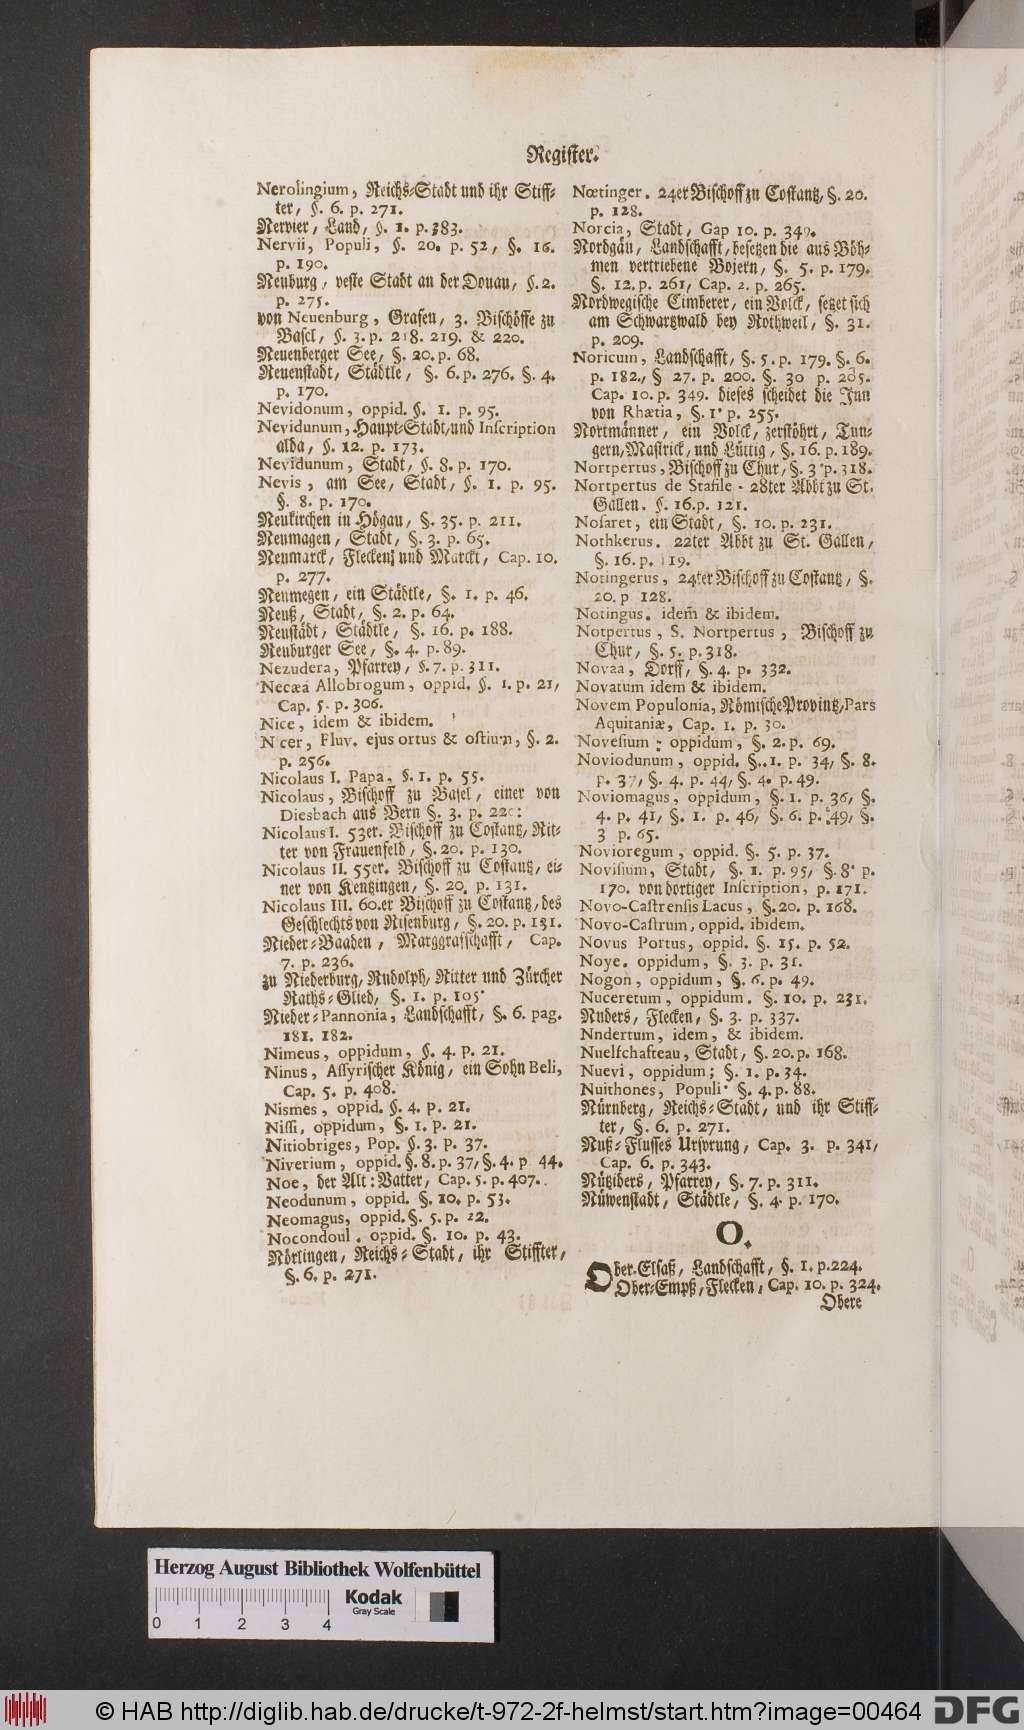 Register.
Nerolingium, Reichs-Stadt und ihr Stiff-
ter, §. 6. p. 271.
Nervier, Land, §. 1. p. 383.
Nervii, Populi, §. 20. p. 52, §. 16.
p. 190.
Neuburg, veste Stadt an der Donau, §. 2.
p. 275.
von Neuenburg, Grafen, 3. Bischöffe zu
Basel, §. 3. p. 218. 219. & 220.
Neuenberger See, §. 20. p. 68.
Neuenstadt, Städtle, §. 6. p. 276. §. 4.
p. 170.
Nevidonum, oppid. §. 1. p. 95.
Nevidunum, Haupt-Stadt, und Inscription
alda, §. 12. p. 173.
Nevidunum, Stadt, §. 8. p. 170.
Nevis, am See, Stadt, §. 1. p. 95.
§. 8. p. 170.
Neukirchen in Högau, §. 35. p. 211.
Neumagen, Stadt, §. 3. p. 65.
Neumarck, Flecken und Marckt, Cap. 10.
p. 277.
Neumegen, ein Städtle, §. 1. p. 46.
Neuß, Stadt, §. 2. p. 64.
Neustädt, Städtle, §. 16. p. 188.
Neuburger See, §. 4. p. 89.
Nezudera, Pfarrey, §. 7. p. 311.
Necæa Allobrogum, oppid. §. 1. p. 21,
Cap. 5. p. 306.
Nice, idem & ibidem.
Nicer, Fluv. ejus ortus & ostium, §. 2.
p. 256.
Nicolaus I. Papa, §. 1. p. 55.
Nicolaus, Bischoff zu Basel, einer von
Diesbach aus Bern §. 3. p. 220:
Nicolaus I. 53er. Bischoff zu Costantz, Rit-
ter von Frauenfeld, §. 20. p. 130.
Nicolaus II. 55er. Bischoff zu Costantz, ei-
ner von Kentzingen, §. 20. p. 131.
Nicolaus III. 60.er Bischoff zu Costantz, des
Geschlechts von Risenburg, §. 20. p. 131.
Nieder-Baaden, Marggrafschafft, Cap.
7. p. 236.
zu Niederburg, Rudolph, Ritter und Zürcher
Raths-Glied, §. 1. p. 105.
Nieder-Pannonia, Landschafft, §. 6. pag.
181. 182.
Nimeus, oppidum, §. 4. p. 21.
Ninus, Assyrischer König, ein Sohn Beli,
Cap. 5. p. 408.
Nismes, oppid. §. 4. p. 21.
Nissi, oppidum, §. 1. p. 21.
Nitiobriges, Pop. §. 3. p. 37.
Niverium, oppid. §. 8. p. 37, §. 4. p 44.
Noe, der Alt-Vatter, Cap. 5. p. 407.
Neodunum, oppid. §. 10. p. 53.
Neomagus, oppid. §. 5. p. 22.
Nocondoul. oppid. §. 10. p. 43.
Nörlingen, Reichs-Stadt, ihr Stiffter,
§. 6. p. 271.
Nœtinger. 24er Bischoff zu Costantz, §. 20.
p. 128.
Norcia, Stadt, Gap 10. p. 349.
Nordgäu, Landschafft, besetzen die aus Böh-
men vertriebene Bojern, §. 5. p. 179.
§. 12. p. 261, Cap. 2. p. 265.
Nordwegische Cimberer, ein Volck, setzet sich
am Schwartzwald bey Rothweil, §. 31.
p. 209.
Noricum, Landschafft, §. 5. p. 179. §. 6.
p. 182., § 27. p. 200. §. 30 p. 205.
Cap. 10. p. 349. dieses scheidet die Inn
von Rhætia, §. 1. p. 255.
Nortmänner, ein Volck, zerstöhrt, Tun-
gern, Mastrick, und Lüttig, §. 16. p. 189.
Nortpertus, Bischoff zu Chur, §. 3. p. 318.
Nortpertus de Stafile - 28ter Abbt zu St.
Gallen. §. 16. p. 121.
Nosaret, ein Stadt, §. 10. p. 231.
Nothkerus. 22ter Abbt zu St. Gallen,
§. 16. p. 119.
Notingerus, 24ter Bischoff zu Costantz, §.
20. p 128.
Notingus. idem̃ & ibidem.
Notpertus, S. Nortpertus, Bischoff zu
Chur, §. 5. p. 318.
Novaa, Dorff, §. 4. p. 332.
Novatum idem & ibidem.
Novem Populonia, Römische Provintz, Pars
Aquitaniæ, Cap. 1. p. 30.
Novesium: oppidum, §. 2. p. 69.
Noviodunum, oppid. §. 1. p. 34, §. 8.
p. 37, §. 4. p. 44, §. 4. p. 49.
Noviomagus, oppidum, §. 1. p. 36, §.
4. p. 41, §. 1. p. 46, §. 6. p. 49, §.
3 p. 65.
Novioregum, oppid. §. 5. p. 37.
Novisium, Stadt, §. 1. p. 95, §. 8. p.
170. von dortiger Inscription, p. 171.
Novo-Castrensis Lacus, §. 20. p. 168.
Novo-Castrum, oppid. ibidem.
Novus Portus, oppid. §. 15. p. 52.
Noye. oppidum, §. 3. p. 31.
Nogon, oppidum, §. 6. p. 49.
Nuceretum, oppidum. §. 10. p. 231.
Nuders, Flecken, §. 3. p. 337.
Nndertum, idem, & ibidem.
Nuelfchafteau, Stadt, §. 20. p. 168.
Nuevi, oppidum; §. 1. p. 34.
Nuithones, Populi. §. 4. p. 88.
Nürnberg, Reichs-Stadt, und ihr Stiff-
ter, §. 6. p. 271.
Nuß-Flusses Ursprung, Cap. 3. p. 341,
Cap. 6. p. 343.
Nütziders, Pfarrey, §. 7. p. 311.
Nüwenstadt, Städtle, §. 4. p. 170.
O.
Ober-Elsaß, Landschafft, §. 1. p. 224.
Ober-Empß, Flecken, Cap. 10. p. 324.
Obere
Herzog August Bibliothek Wolfenbüttel
Kodak
Gray Scale
0 1 2 3 4
© HAB http://diglib.hab.de/drucke/t-972-2f-helmst/start.htm?image=00464
DFG